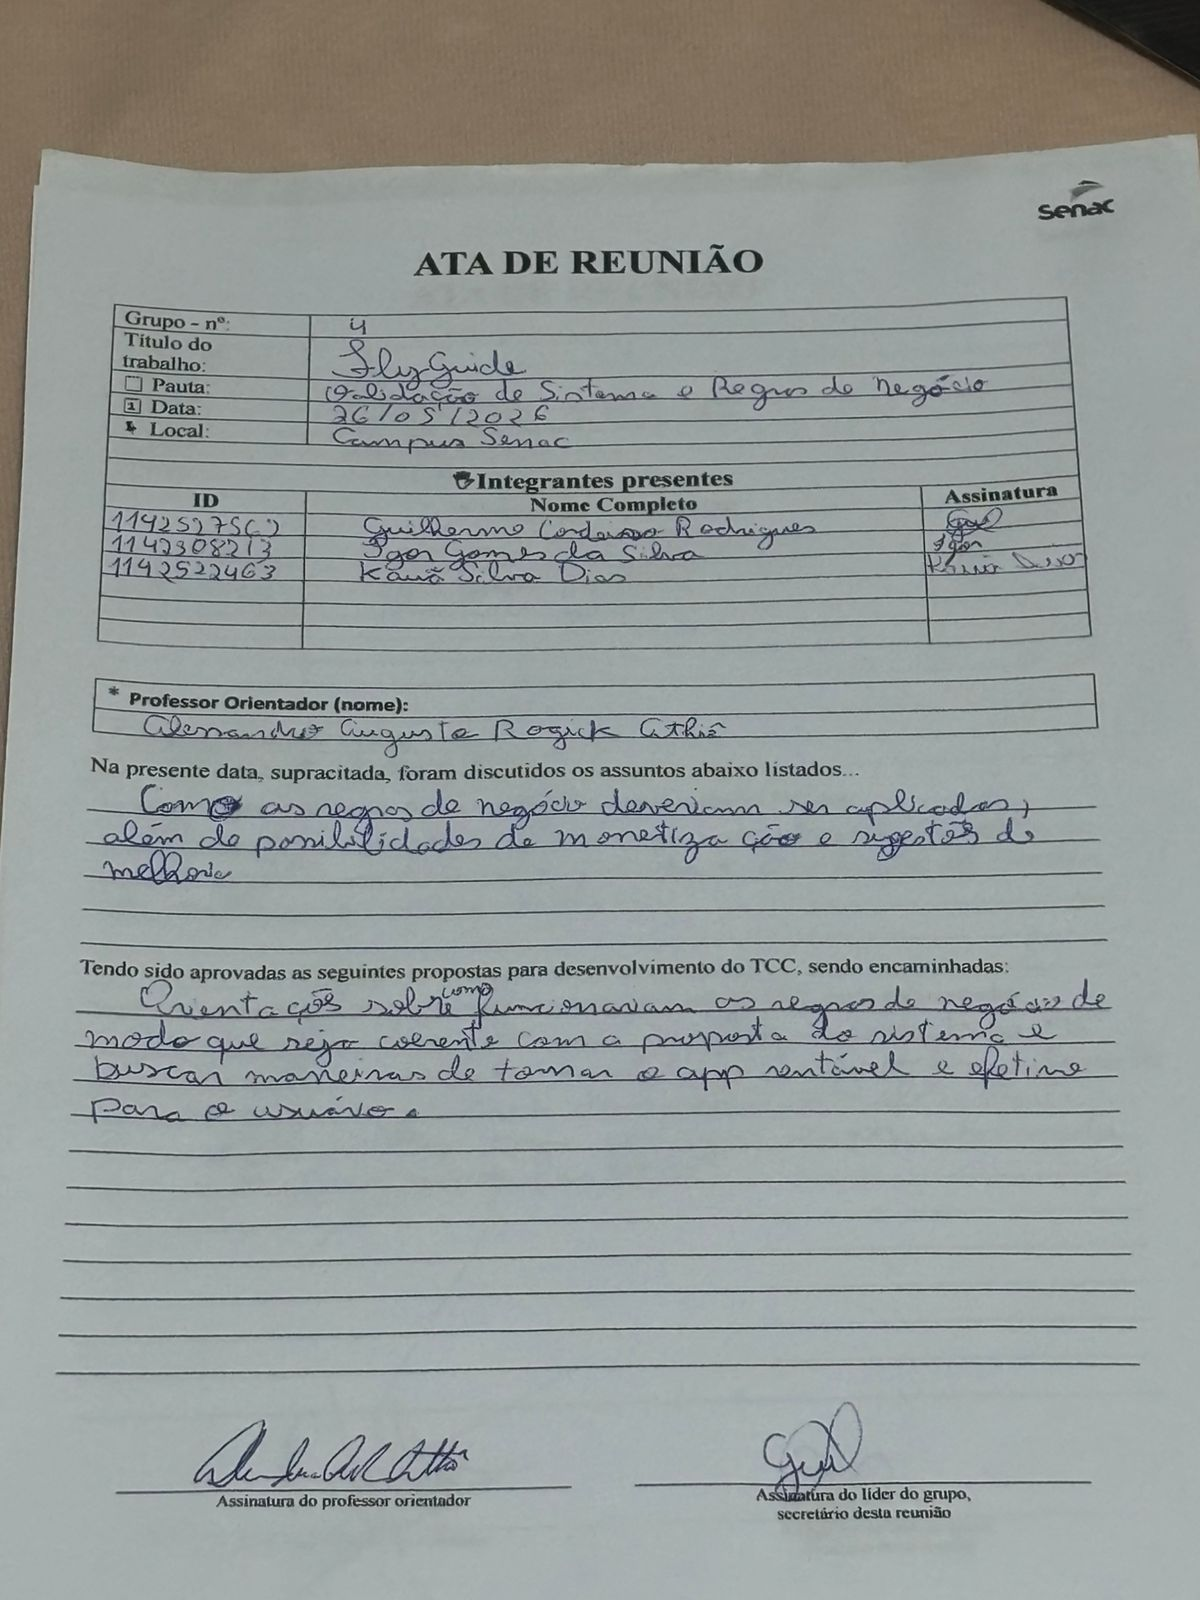 senac
ATA DE REUNIÃO
Grupo - nº: 4
Título do
trabalho: FlyGuide
Pauta: Validação de Sistema e Regras de negócio
Data: 26/05/2026
Local: Campus Senac
Integrantes presentes
ID Nome Completo Assinatura
Guilherme Cordeiro Rodrigues Gui
1142308213 Igor Gomes da Silva Igor
1142522463 Kauã Silva Dias
* Professor Orientador (nome):
Alessandro Augusto Rogick Athiê
Na presente data, supracitada, foram discutidos os assuntos abaixo listados...
Como as regras de negócio deveriam ser aplicadas,
além de possibilidades de monetização e sugestões de
melhoria
Tendo sido aprovadas as seguintes propostas para desenvolvimento do TCC, sendo encaminhadas:
Orientações sobre como funcionariam as regras de negócio de
modo que seja coerente com a proposta do sistema e
buscar maneiras de tornar o app rentável e efetivo
para o usuário.
Assinatura do professor orientador
Gui
Assinatura do líder do grupo,
secretário desta reunião